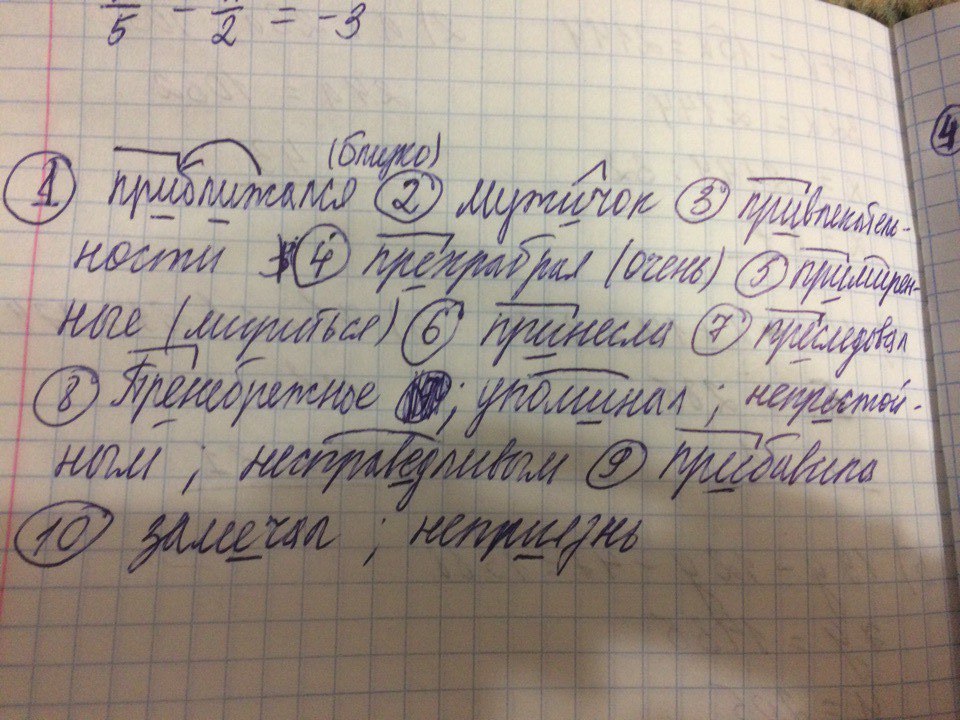 π/5 - π/2 = -3
(близко)
① приближался ② мужичок ③ привлекатель-
ности ④ прехрабрая (очень) ⑤ примирен-
ные (мириться) ⑥ принесла ⑦ преследовал
⑧ Пренебрежное ; упоминал ; непристой-
ным ; несправедливым ⑨ прибавила
⑩ замечал ; неприязнь
④